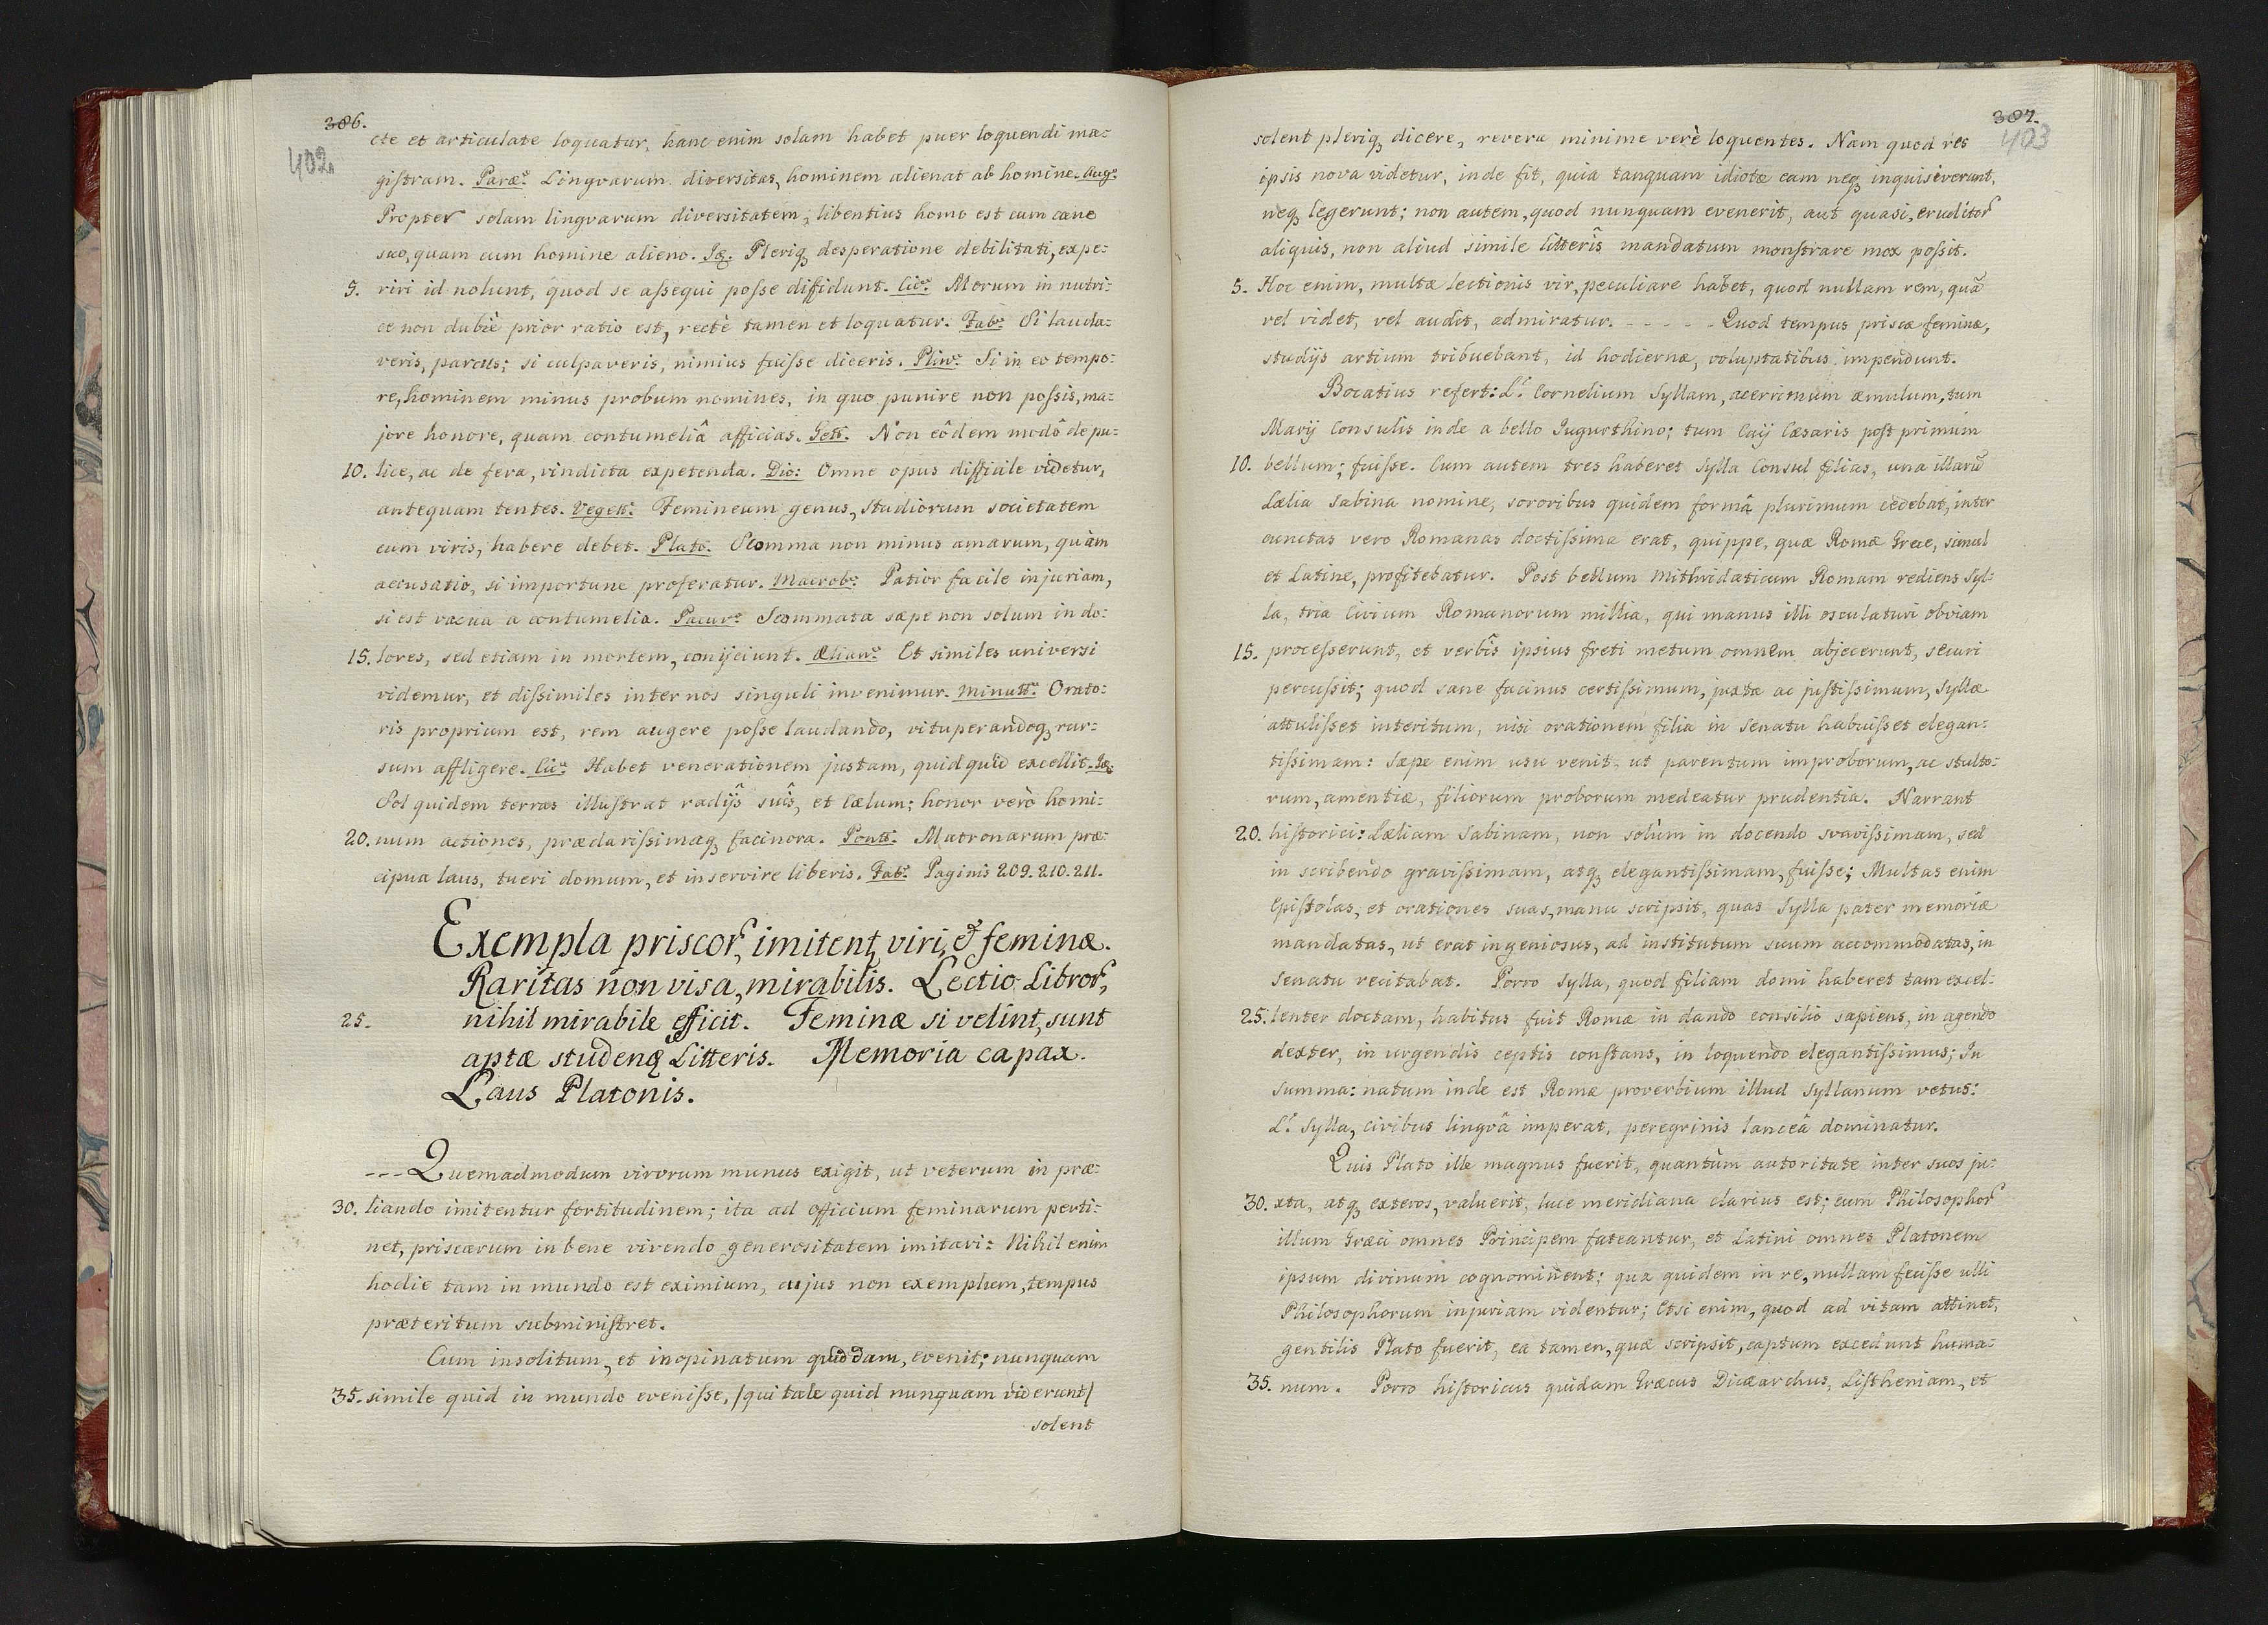 306.
402
cte et articulate loquatur, hanc enim solam habet puer loquendi ma=
gistram. Paræ: Lingvarum diversitas, hominem alienat ab homine. Aug:
Propter solam lingvarum diversitatem, libentius homo est cum cane
suo, quam cum homine alieno. Id. Pleriq, desperatione debilitati, expe=
5. riri id nolunt, quod se assequi posse diffidunt. Cic: Morum in nutri=
ce non dubiè prior ratio est, rectè tamen et loquatur. Fab: Si lauda=
veris, parcus; si culpaveris, nimius fuisse diceris. Plin: Si in eo tempo=
re, hominem minus probum nomines, in quo punire non possis, ma=
jore honore, quam contumeliâ afficias. Gell. Non eôdem modô de pu=
10. lice, ac de fera, vindicta expetenda. Dio: Omne opus difficile videtur,
antequam tentes. Veget: Femineum genus, studiorum societatem
cum viris, habere debet. Plato. Scomma non minus amarum, quàm
accusatio, si importune proferatur. Macrob: Patior facile injuriam,
si est vacua a contumelia. Pacuv: Scommata sæpe non solum in do=
15. lores, sed etiam in mortem, conijciunt. Ælian: Et similes universi
videmur, et dissimiles inter nos singuli invenimur. Minutt: Orato=
ris proprium est, rem augere posse laudando, vituperandoq, rur=
sum affligere. Cic: Habet venerationem justam, quidquid excellit. Id.
Sol quidem terras illustrat radijs suis, et Cælum; honor verò homi=
20. num actiones, præclarissimaq, facinora. Pontt: Matronarum præ=
cipua laus, tueri domum, et inservire liberis. Fab: Paginis 209. 210. 211.
Exempla priscor, imitent, viri, & feminæ.
Raritas non visa, mirabilis. Lectio Libror,
25. nihil mirabile efficit. Feminæ si velint, sunt
aptæ studendæ Litteris. Memoria capax.
Laus Platonis.
--- Quemadmodum virorum munus exigit, ut veterum in præ=
30. liando imitentur fortitudinem; ita ad officium feminarum perti=
net, priscarum in bene vivendo generositatem imitari: Nihil enim
hodie tam in mundo est eximium, cujus non exemplum, tempus
præteritum subministret.
Cum insolitum, et inopinatum quiddam, evenit; nunquam
35. simile quid in mundo evenisse, /qui tale quid nunquam viderunt/
solent
307.
403
solent pleriq, dicere, revera minime verè loquentes. Nam quod res
ipsis nova videtur, inde fit, quia tanquam idiotæ eam neq, inquisiverunt,
neq, legerunt; non autem, quod nunquam evenerit, aut quasi, eruditor
aliquis, non aliud simile litteris mandatum monstrare mox possit.
5. Hoc enim, multæ lectionis vir, peculiare habet, quod nullam rem, quã
vel videt, vel audit, admiratur. - - - - - Quod tempus priscæ feminæ,
studijs artium tribuebant, id hodiernæ, voluptatibus impendunt.
Bocatius refert: L: Cornelium Syllam, acerrimum æmulum, tum
Marij Consulis inde a bello Jugurthino; tum Caij Cæsaris post primum
10. bellum; fuisse. Cum autem tres haberet Sylla Consul filias, una illarũ
Lælia Sabina nomine, sororibus quidem formâ plurimum cedebat, inter
cunctas vero Romanas doctissima erat, quippe, quæ Romæ Græe, simul
et Latine, profitebatur. Post bellum Mithridaticum Romam rediens Syl=
la, tria Civium Romanorum millia, qui manus illi osculaturi obviam
15. processerunt, et verbis ipsius freti metum omnem abjecerunt, securi
percussit; quod sane facinus certissimum, juxta ac justissimum, Syllæ
attulisset interitum, nisi orationem filia in Senatu habuisset elegan=
tissimam: Sæpe enim usu venit, ut parentum improborum, ac stulto=
rum, amentiæ, filiorum proborum medeatur prudentia. Narrant
20. historici: Læliam Sabinam, non solùm in docendo svavissimam, sed
in scribendo gravissimam, atq, elegantissimam, fuisse; Multas enim
Epistolas, et orationes suas, manu scripsit, quas Sylla pater memoriæ
mandatas, ut erat ingeniosus, ad institutum suum accommodatas, in
Senatu recitabat. Porro Sylla, quod filiam domi haberet tam excel=
25. lenter doctam, habitus fuit Romæ in dando consilio sapiens, in agendo
dexter, in urgendis ceptis constans, in loquendo elegantissimus; In
summa: natum inde est Romæ proverbium illud Syllanum vetus:
L: Sylla, civibus linguâ imperat, peregrinis lanceâ dominatur.
Quis Plato ille magnus fuerit, quantùm autoritate inter suos ju=
30. xta, atq, exteros, valuerit, luce meridiana clarius est; cum Philosophor
illum Græci omnes Principem fateantur, et Latini omnes Platonem
ipsum divinum cognominent; qua quidem in re, nullam fecisse ulli
Philosophorum injuriam videntur; Etsi enim, quod ad vitam attinet,
gentilis Plato fuerit, ea tamen, quæ scripsit, captum excedunt huma=
35. num. Porro historicus quidam Græcus Dicæarchus, Listheniam, et